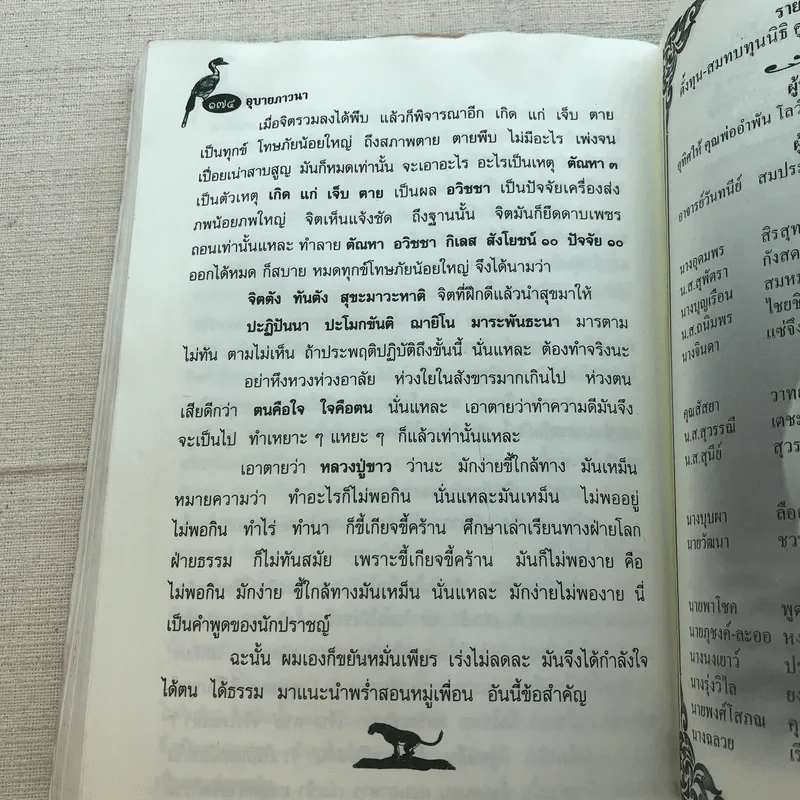 ๑๗๔ อุบายภาวนา
เมื่อจิตรวมลงได้พึบ แล้วก็พิจารณาอีก เกิด แก่ เจ็บ ตาย
เป็นทุกข์ โทษภัยน้อยใหญ่ ถึงสภาพตาย ตายพึบ ไม่มีอะไร เพ่งจน
เปื่อยเน่าสาบสูญ มันก็หมดเท่านั้น จะเอาอะไร อะไรเป็นเหตุ ตัณหา ๓
เป็นตัวเหตุ เกิด แก่ เจ็บ ตาย เป็นผล อวิชชา เป็นปัจจัยเครื่องส่ง
ภพน้อยภพใหญ่ จิตเห็นแจ้งชัด ถึงฐานนั้น จิตมันก็ยึดดาบเพชร
ถอนเท่านั้นแหละ ทำลาย ตัณหา อวิชชา กิเลส สังโยชน์ ๑๐ ปัจจัย ๑๐
ออกได้หมด ก็สบาย หมดทุกข์โทษภัยน้อยใหญ่ จึงได้นามว่า
จิตตัง ทันตัง สุขะมาวะหาติ จิตที่ฝึกดีแล้วนำสุขมาให้
ปะฏิปันนา ปะโมกขันติ ฌายิโน มาระพันธะนา มารตาม
ไม่ทัน ตามไม่เห็น ถ้าประพฤติปฏิบัติถึงขั้นนี้ นั่นแหละ ต้องทำจริงนะ
อย่าหึงหวงห่วงอาลัย ห่วงใยในสังขารมากเกินไป ห่วงตน
เสียดีกว่า ตนคือใจ ใจคือตน นั่นแหละ เอาตายว่าทำความดีมันจึง
จะเป็นไป ทำเหยาะ ๆ แหยะ ๆ ก็แล้วเท่านั้นแหละ
เอาตายว่า หลวงปู่ขาว ว่านะ มักง่ายขี้ใกล้ทาง มันเหม็น
หมายความว่า ทำอะไรก็ไม่พอกิน นั่นแหละมันเหม็น ไม่พออยู่
ไม่พอกิน ทำไร่ ทำนา ก็ขี้เกียจขี้คร้าน ศึกษาเล่าเรียนทางฝ่ายโลก
ฝ่ายธรรม ก็ไม่ทันสมัย เพราะขี้เกียจขี้คร้าน มันก็ไม่พองาย คือ
ไม่พอกิน มักง่าย ขี้ใกล้ทางมันเหม็น นั่นแหละ มักง่ายไม่พองาย นี่
เป็นคำพูดของนักปราชญ์
ฉะนั้น ผมเองก็ขยันหมั่นเพียร เร่งไม่ลดละ มันจึงได้กำลังใจ
ได้ตน ได้ธรรม มาแนะนำพร่ำสอนหมู่เพื่อน อันนี้ข้อสำคัญ
ราย
ตั้งทุน-สมทบทุนนิธิ
อุทิศให้ คุณพ่ออำพัน โลวี
อาจารย์วันทนีย์ สมประ
นางอุดมพร สิรสุท
น.ส.สุพัตรา กังสด
นางบุญเรือน สมห
น.ส.ถนิมพร ไชยชิ
นางจินดา แซ่จึง
คุณสัสยา วาทย
น.ส.สุวรรณี เตชะ
น.ส.สุนีย์ สุวร
นางบุบผา ลือ
นายวัฒนา ชว
นายพาโชค พูด
นายภุชงค์-ละออ ห
นางนงเยาว์ ป
นางรุ่งวิไล ย
นายพงศ์โสภณ คุ
นางฉลวย เ